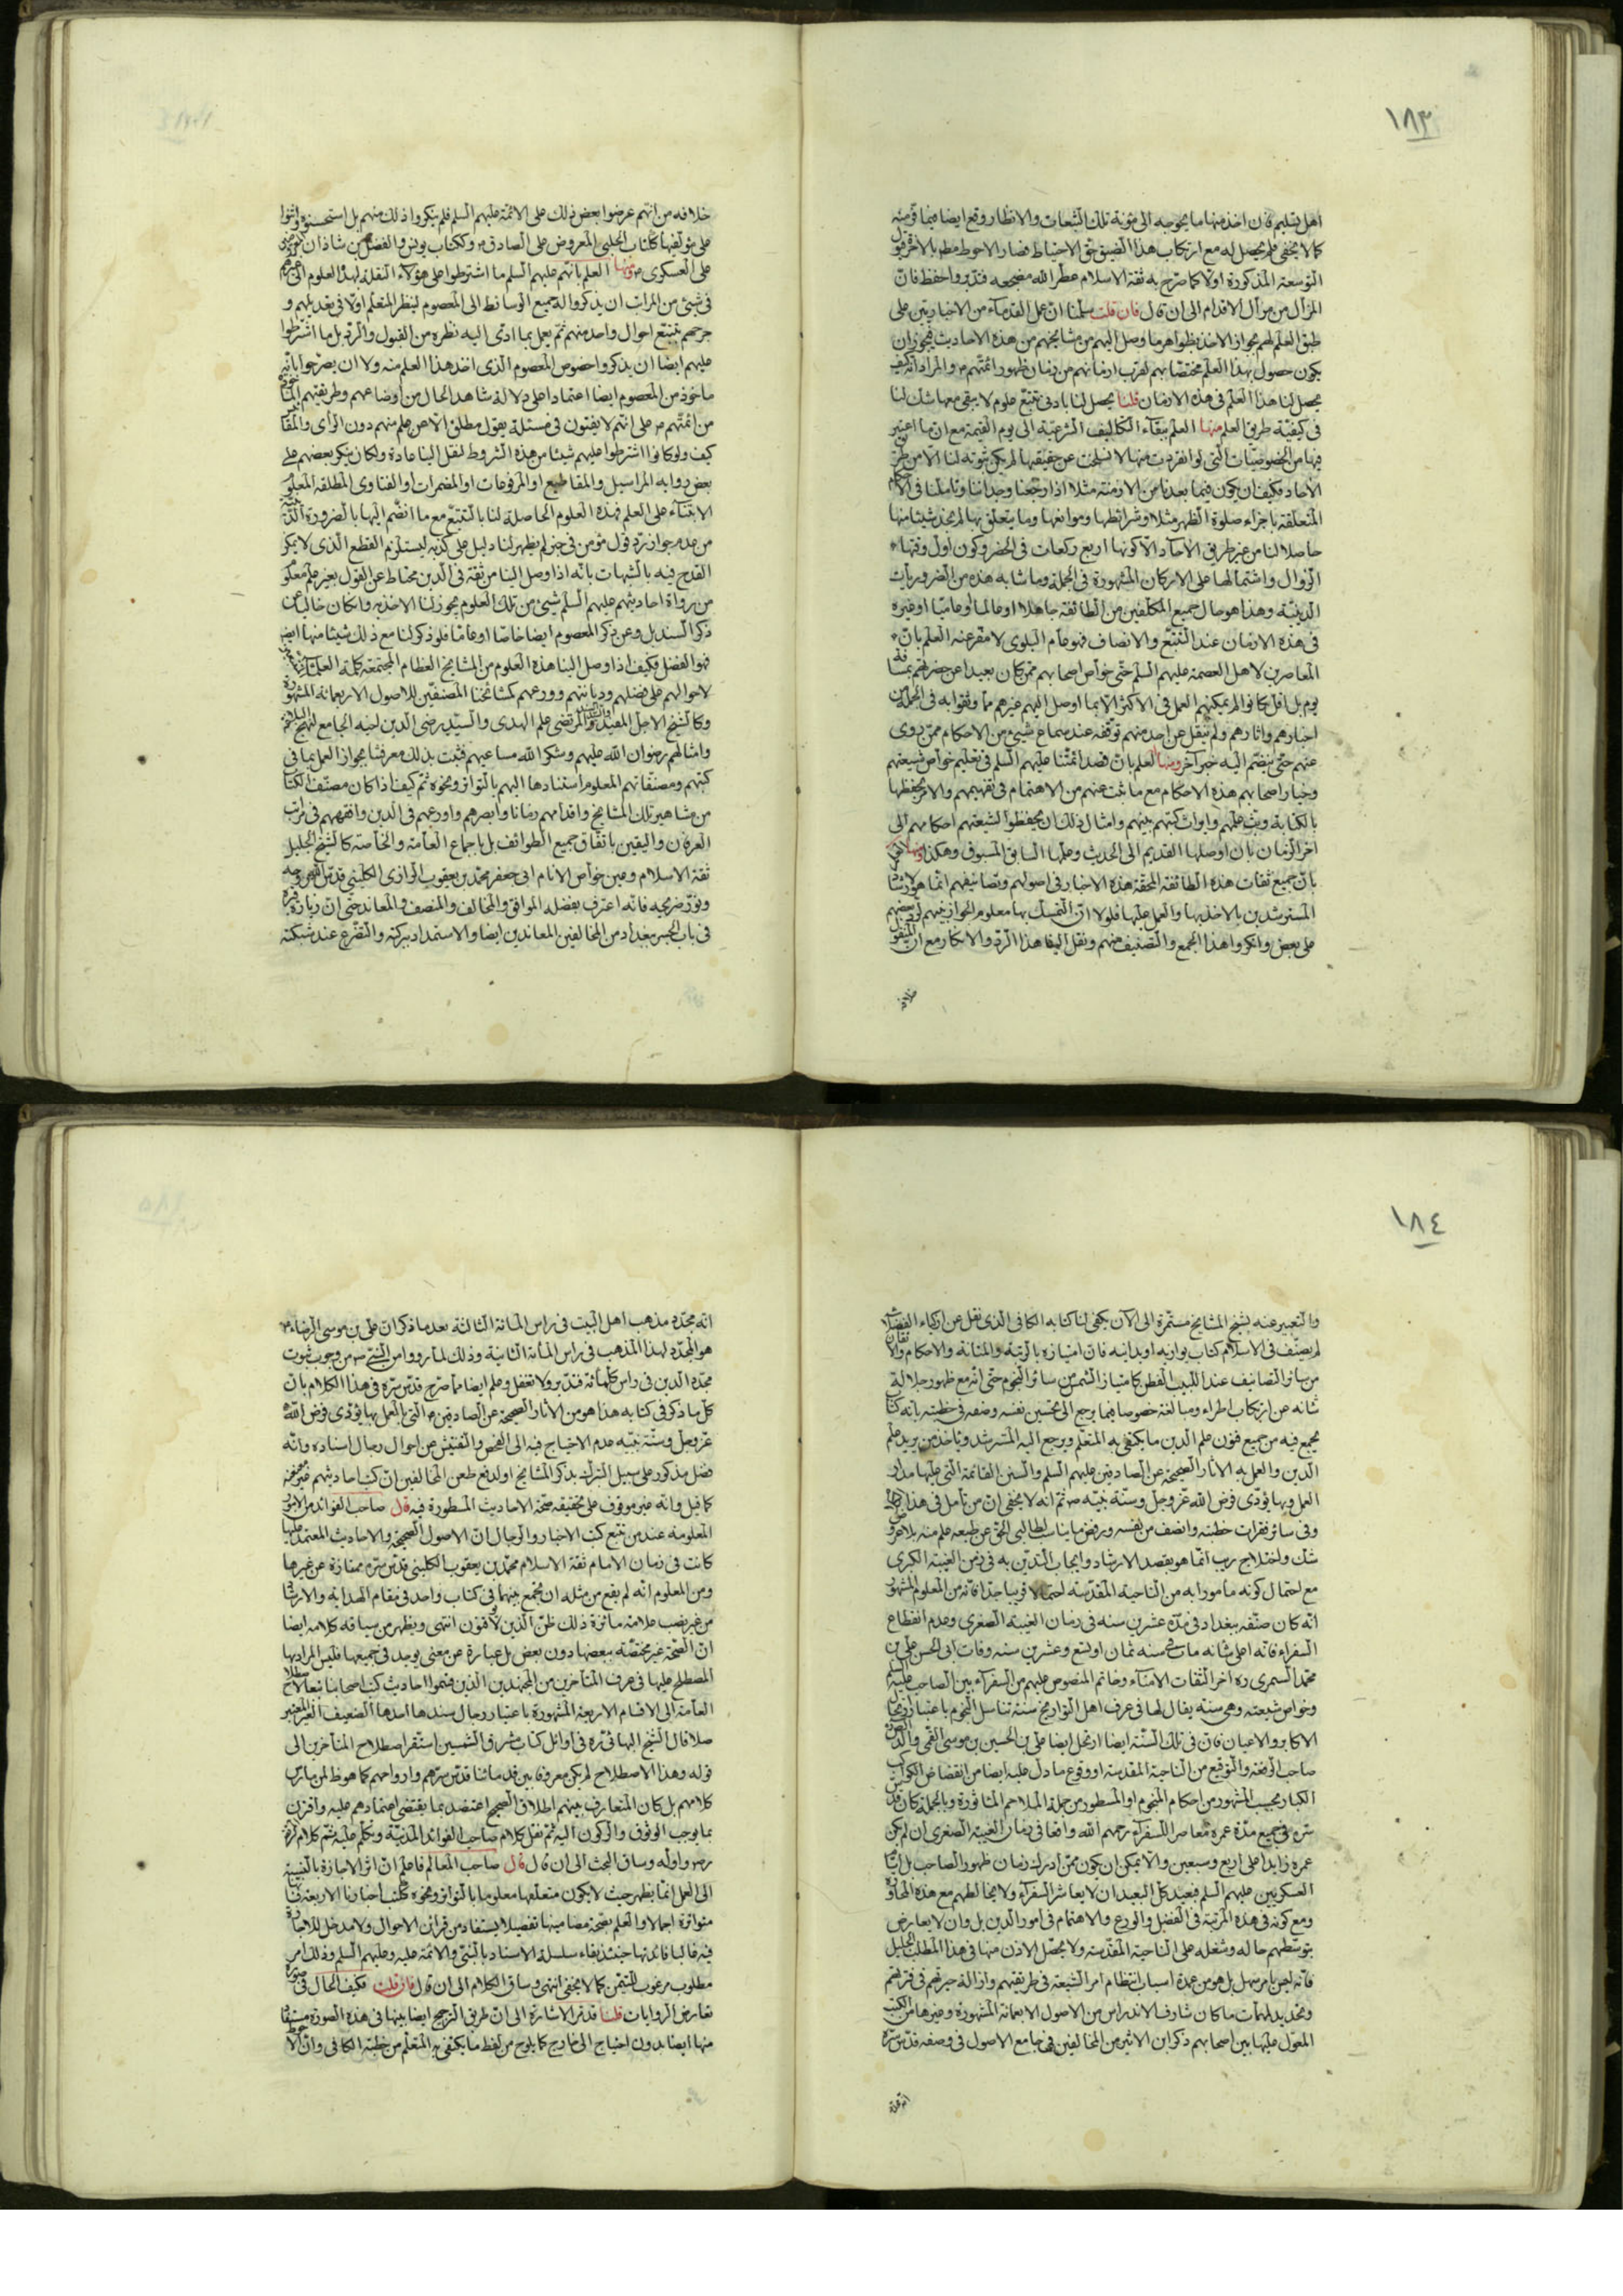 ١٨٣
اهل بقليهم فان اخذ منها ما يحوجه الى مؤنة تلك الشعات والانظار وقع ايضا فيما فر منه
كما لا يخفى فلم يحصل له مع ارتكاب هذا الضيق حق الاحتياط فصار الاحوط مطم بالاخرة هو
التوسعة المذكورة اولا كما صرح به ثقة الاسلام عطر الله مضجعه فتدبر واحفظ فان
المزال من مزال الاقدام الى ان قال فان قلت سلمنا ان عمل القدماء من الاخباريين على
طبق العلم لهم بجواز الاخذ بظواهر ما وصل اليهم من مشايخهم من هذه الاحاديث فيجوز ان
يكون حصول هذا العلم مختصا بهم لقرب ازمانهم من زمان ظهور ائمتهم ع والمراد انه كيف
يحصل لنا هذا العلم فى هذه الازمان قلنا يحصل لنا بادنى تتبع علوم لا يبقى معها شك لنا
فى كيفية طريق العلم منها العلم ببقاء التكاليف الشرعية الى يوم القيمة مع ان ما اعتبر
فيها من الخصوصيات التى لو انفردت منها لانسلخت عن حقيقتها لم يكن ثبوته لنا الا من طرق
الاحاد فكيف ان يكون فيما بعدنا من الازمنة مثلا اذا رجعنا وجداننا وتاملنا فى الاحكام
المتعلقة باجزاء صلوة الظهر مثلا وشرائطها وموانعها وما يتعلق بها لم نجد شيئا منها
حاصلا لنا من غير طريق الآحاد الا كونها اربع ركعات فى الحضر وكون اول وقتها
الزوال واشتمالها على الاركان المشهورة فى الجملة وما شابه هذه من الضروريات
الدينية وهذا هو حال جميع المكلفين من الطائفة جاهلا او عالما او عاميا او غيره
فى هذه الازمان عند التتبع والانصاف فهو عام البلوى لا مفر عنه العلم بان
المعاصرين لاهل العصمة عليهم السلم حتى خواص اصحابهم ممن كان بعيدا عن حضرتهم بمسافة
يوم بل اقل كانوا لم يمكنهم العمل فى الاكثر الا بما اوصل اليهم غيرهم مما وثقوا به فى الجملة من
اخبارهم واثارهم ولم ينقل عن احد منهم توقفه عند سماع شىء من الاحكام ممن روى
عنهم حتى ينضم اليه خبر آخر ومنها العلم بان قصد ائمتنا عليهم السلم فى تعليم خواص شيعتهم
وخيار اصحابهم هذه الاحكام مع ما ثبت عنهم من الاهتمام فى تفهيمهم والامر بحفظها
بالكتابة وبث علمهم وايراث كتبهم بينهم وامثال ذلك ان يحفظوا لشيعتهم احكامهم الى
اخر الزمان بان اوصلها القديم الى الحديث وعلمها السابق المسبوق وهكذا ومنها العلم
بان جميع ثقات هذه الطائفة المحقة هذه الاخبار فى اصولهم وتصانيفهم انما هو لارشاد
المسترشدين بالاخذ بها والعمل عليها فلولا ان التمسك بها معلوم الجواز بينهم لرد بعضهم
على بعض وانكروا هذا الجمع والتصنيف منهم ونقل الينا هذا الرد والانكار مع ان المنقول
خلافه
خلافه من انهم عرضوا بعض ذلك على الائمة عليهم السلم فلم ينكروا ذلك منهم بل استحسنوه واثنوا
على مؤلفها ككتاب الحلبى المعروض على الصادق ع وككتاب يونس والفضل بن شاذان المعروضين
على العسكرى ع ومنها العلم بانهم عليهم السلم ما اشترطوا على هؤلاء النقلة لهذا العلوم الى غيرهم
فى شىء من المرات ان يذكروا له جميع الوسائط الى المعصوم لينظر المتعلم اولا فى تعديلهم و
جرحهم بتتبع احوال واحد منهم ثم يعمل بما ادى اليه نظره من القبول والرد بل ما اشترطوا
عليهم ايضا ان يذكروا خصوص المعصوم الذى اخذ هذا العلم منه ولا ان يصرحوا بانه
ماخوذ من المعصوم ايضا اعتمادا على دلالة شاهد الحال من اوضاعهم وطريقتهم الماخوذة
من ائمتهم ع على انهم لا يفتون فى مسئلة بقول مطلق الا عن علم منهم دون الرأى والمقايس
كيف ولو كانوا اشترطوا عليهم شيئا من هذه الشروط لنقل الينا عادة ولكان ينكر بعضهم على
بعض رواية المراسيل والمقاطيع او المرفوعات او المضمرات او الفتاوى المطلقة المعلومة
الابتناء على العلم فهذه العلوم الحاصلة لنا بالتتبع مع ما انضم اليها بالضرورة الدينية
من عدم جواز رد قول مؤمن فى خبر لم يظهر لنا دليل على كذبه ليستلزم القطع الذى لا يمكن
القدح فيه بالشبهات بانه اذا وصل الينا من ثقة فى الدين محتاط عن القول بغير علم معلوم
من رواة احاديثهم عليهم السلم شىء من تلك العلوم يجوز لنا الاخذ به وان كان خاليا عن
ذكر السند بل وعن ذكر المعصوم ايضا خاصا او عاما فلو ذكر لنا مع ذلك شيئا منها ايضا
فهو الفضل فكيف اذا وصل الينا هذه العلوم من المشايخ العظام المجتمعة كلمة العلماء
لاحوالهم على فضلهم وديانتهم وورعهم كمشائخنا المصنفين للاصول الاربعمائة المشهورة
وكالشيخ الاجل المفيد والمرتضى علم الهدى والسيد رضى الدين اخيه الجامع لنهج البلاغة
وامثالهم رضوان الله عليهم وشكر الله مساعيهم فثبت بذلك معرفتنا بجواز العمل بما فى
كتبهم ومصنفاتهم المعلوم استنادها اليهم بالتواتر ونحوه ثم كيف اذا كان مصنف الكتاب
من مشاهير تلك المشايخ واقدامهم زمانا وابصرهم واورعهم فى الدين وافقههم فى مراتب
العرفان واليقين باتفاق جميع الطوائف بل باجماع العامة والخاصة كالشيخ الجليل
ثقة الاسلام وعين خواص الانام ابى جعفر محمد بن يعقوب الرازى الكلينى قدس الله روحه
ونور ضريحه فانه اعترف بفضله الموافق والمخالف والمنصف والمعاند حتى ان زيارة قبره
فى باب الجسر ببغداد من المخالفين المعاندين ايضا والاستمداد ببركته والتضرع عند شبكته
١٨٤
والتعبير عنه بشيخ المشايخ مستمرة الى الآن يكفى لنا كتابه الكافى الذى نقل عن ازكياء الفضلاء انه
لم يصنف فى الاسلام كتاب يوازيه او يدانيه فان امتيازه بالرتبة والمتانة والاحكام والاتقان
من سائر التصانيف عند اللبيب الفطن كامتياز الشمس من سائر النجوم حتى انه مع ظهور جلالة
شانه عن ارتكاب اطراء ومبالغة خصوصا فيما يرجع الى تحسين نفسه وصفه فى خطبته بانه كتاب
يجمع فيه من جميع فنون علم الدين ما يكتفى به المتعلم ويرجع اليه المسترشد وياخذ من يريد علم
الدين والعمل به الآثار الصحيحة عن الصادقين عليهم السلم والسنن القائمة التى عليها مدار
العمل وبها يؤدى فرض الله عز وجل وسنة نبيه ص ثم انه لا يخفى ان من تامل فى هذا الكلام
وفى سائر فقرات خطبته وانصف من نفسه ورفض ما يناب لطالبى الحق عن طبعه علم منه بلا عروض
شك واختلاج ريب انما هو بقصد الارشاد وايجاب التدين به فى زمن الغيبة الكبرى
مع احتمال كونه مامورا به من الناحية المقدسة احتمالا قريبا جدا فانه من المعلوم المشهور
انه كان صنفه ببغداد فى مدة عشرين سنة فى زمان الغيبة الصغرى وعدم انقطاع
السفراء فانه اعلى شانه مات فى سنة ثمان او تسع وعشرين سنه وفات ابى الحسن على بن
محمد السمرى ره آخر الثقات الامناء وخاتم المنصوص عليهم من السفراء بين الصاحب عليه السلم
وخواص شيعته وهى سنة يقال لها فى عرف اهل التواريخ سنة تناسل النجوم باعتبار ارتحال
الاكابر والاعيان فان فى تلك السنة ايضا ارتحل ايضا على بن الحسين بن موسى القمى والد الصدوق
صاحب الرقعة والتوقيع من الناحية المقدسة او وقوع ما دل عليه ايضا من انقضاض الكواكب
الكبار بحسب المشهور من احكام المنجوم او المسطور من جملة الملاحم الماثورة وبالجملة كان قدس
سره فى جميع مدة عمره معاصرا للسفراء رحمهم الله واقعا فى زمان الغيبة الصغرى ان لم يكن
عمره زايدا على اربع وسبعين والا يمكن ان يكون ممن ادرك زمان ظهور الصاحب بل ايضا
العسكريين عليهم السلم فبعيد كل البعيد ان لا يعاشر السفراء ولا يخالطهم مع هذه المجاورة
ومع كونه فى هذه المرتبة فى الفضل والورع والاهتمام فى امور الدين بل وان لا يعارض
بتوسطهم حاله وشغله على الناحية المقدسة ولا يحصل الاذن منها فى هذا المطلب الجليل
فانه ليس بامر سهل بل هو من عمدة اسباب انتظام امر الشيعة فى طريقتهم وازالة حيرتهم فى فترتهم
وتحديد لمهمات ما كان شارف الاندراس من الاصول الاربعمائة المشهورة وغيرها من الكتب
المعول عليها بين اصحابهم ذكر ابن الاثير من المخالفين فى جامع الاصول فى وصفه قدس سره
انه مجدد
انه مجدد مذهب اهل البيت فى راس المائة الثالثة بعد ما ذكر ان على بن موسى الرضا ع
هو المجدد لهذا المذهب فى راس المائة الثانية وذلك لما رووا من النبى ص من وجوب ثبوت
مجدد الدين فى راس كل مائة فتدبر ولا تغفل وعلم ايضا مما صرح قدس سره فى هذا الكلام بان
كل ما ذكر فى كتابه هذا هو من الآثار الصحيحة عن الصادقين ع التى بالعمل بها يؤدى فرض الله
عز وجل وسنة نبيه عدم الاحتياج فيه الى الفحص والتفتيش من احوال رجال اسناده وانه
فضل مذكور على سبيل التبرك بذكر المشايخ او لدفع طعن المخالفين ان كتب احاديثهم غير صحيحة
كما قيل وانه غير موقوف على تحقيقه صحة الاحاديث المسطورة فيه قال صاحب الفوائد من الامور
المعلومة عند من تتبع كتب الاخبار والرجال ان الاصول الصحيحة والاحاديث المعتمد عليها
كانت فى زمان الامام ثقة الاسلام محمد بن يعقوب الكلينى قدس سره ممتازة عن غيرها
ومن المعلوم انه لم يقع من مثله ان يجمع بينهما فى كتاب واحد فى مقام الهداية والارشاد
من غير نصب علامة مائزة ذلك ظن الذين لا يفقهون انتهى ويظهر من سياقة كلامه ايضا
ان الصحة غير مختصة ببعضها دون بعض بل عبارة عن معنى يوجد فى جميعها فليس المراد بها
المصطلح عليها فى عرف المتأخرين من المجتهدين الذين قسموا احاديث كتب اصحابنا تبعا لاصطلاح
العامة الى الاقسام الاربعة المشهورة باعتبار رجال سندها احدها الضعيف الغير المعتبر
اصلا قال الشيخ البهائى ره فى اوائل كتاب مشرق الشمسين استقر اصطلاح المتأخرين الى
قوله وهذا الاصطلاح لم يكن معروفا بين قدمائنا قدس سرهم وارواحهم كما هو ظ لمن مارس
كلامهم بل كان المتعارف بينهم اطلاق الصحيح اعتضد بما يقتضى اعتمادهم عليه واقترن
بما يوجب الوثوق والركون اليه ثم نقل كلام صاحب الفوائد المدنية وتكلم عليه ثم كلام
ره واوله وساق البحث الى ان قال قال صاحب المعالم فاعلم ان اثر الاجازة بالنسبة
الى العمل انما يظهر حيث لا يكون متعلقها معلوما بالتواتر ونحوه ككتب اخبارنا الاربعة فانها
متواترة اجمالا والعلم بصحة مضامينها تفصيلا يستفاد من قرائن الاحوال ولا مدخل للاجازة
فيه غالبا فائدتها حينئذ بقاء سلسلة الاسناد بالنبى والائمة عليه وعليهم السلم وذلك امر
مطلوب مرغوب للتيمن كما لا يخفى انتهى وساق الكلام الى ان قال فان قلت فكيف الحال فى صورة
تعارض الروايات قلنا قد مر الاشارة الى ان طريق الترجيح ايضا بينها فى هذه الصورة مستفاد
منها ايضا بدون احتياج الى خارج كما يلوح من لفظ ما يكتفى به المتعلم من خطبة الكافى وان الاحوط